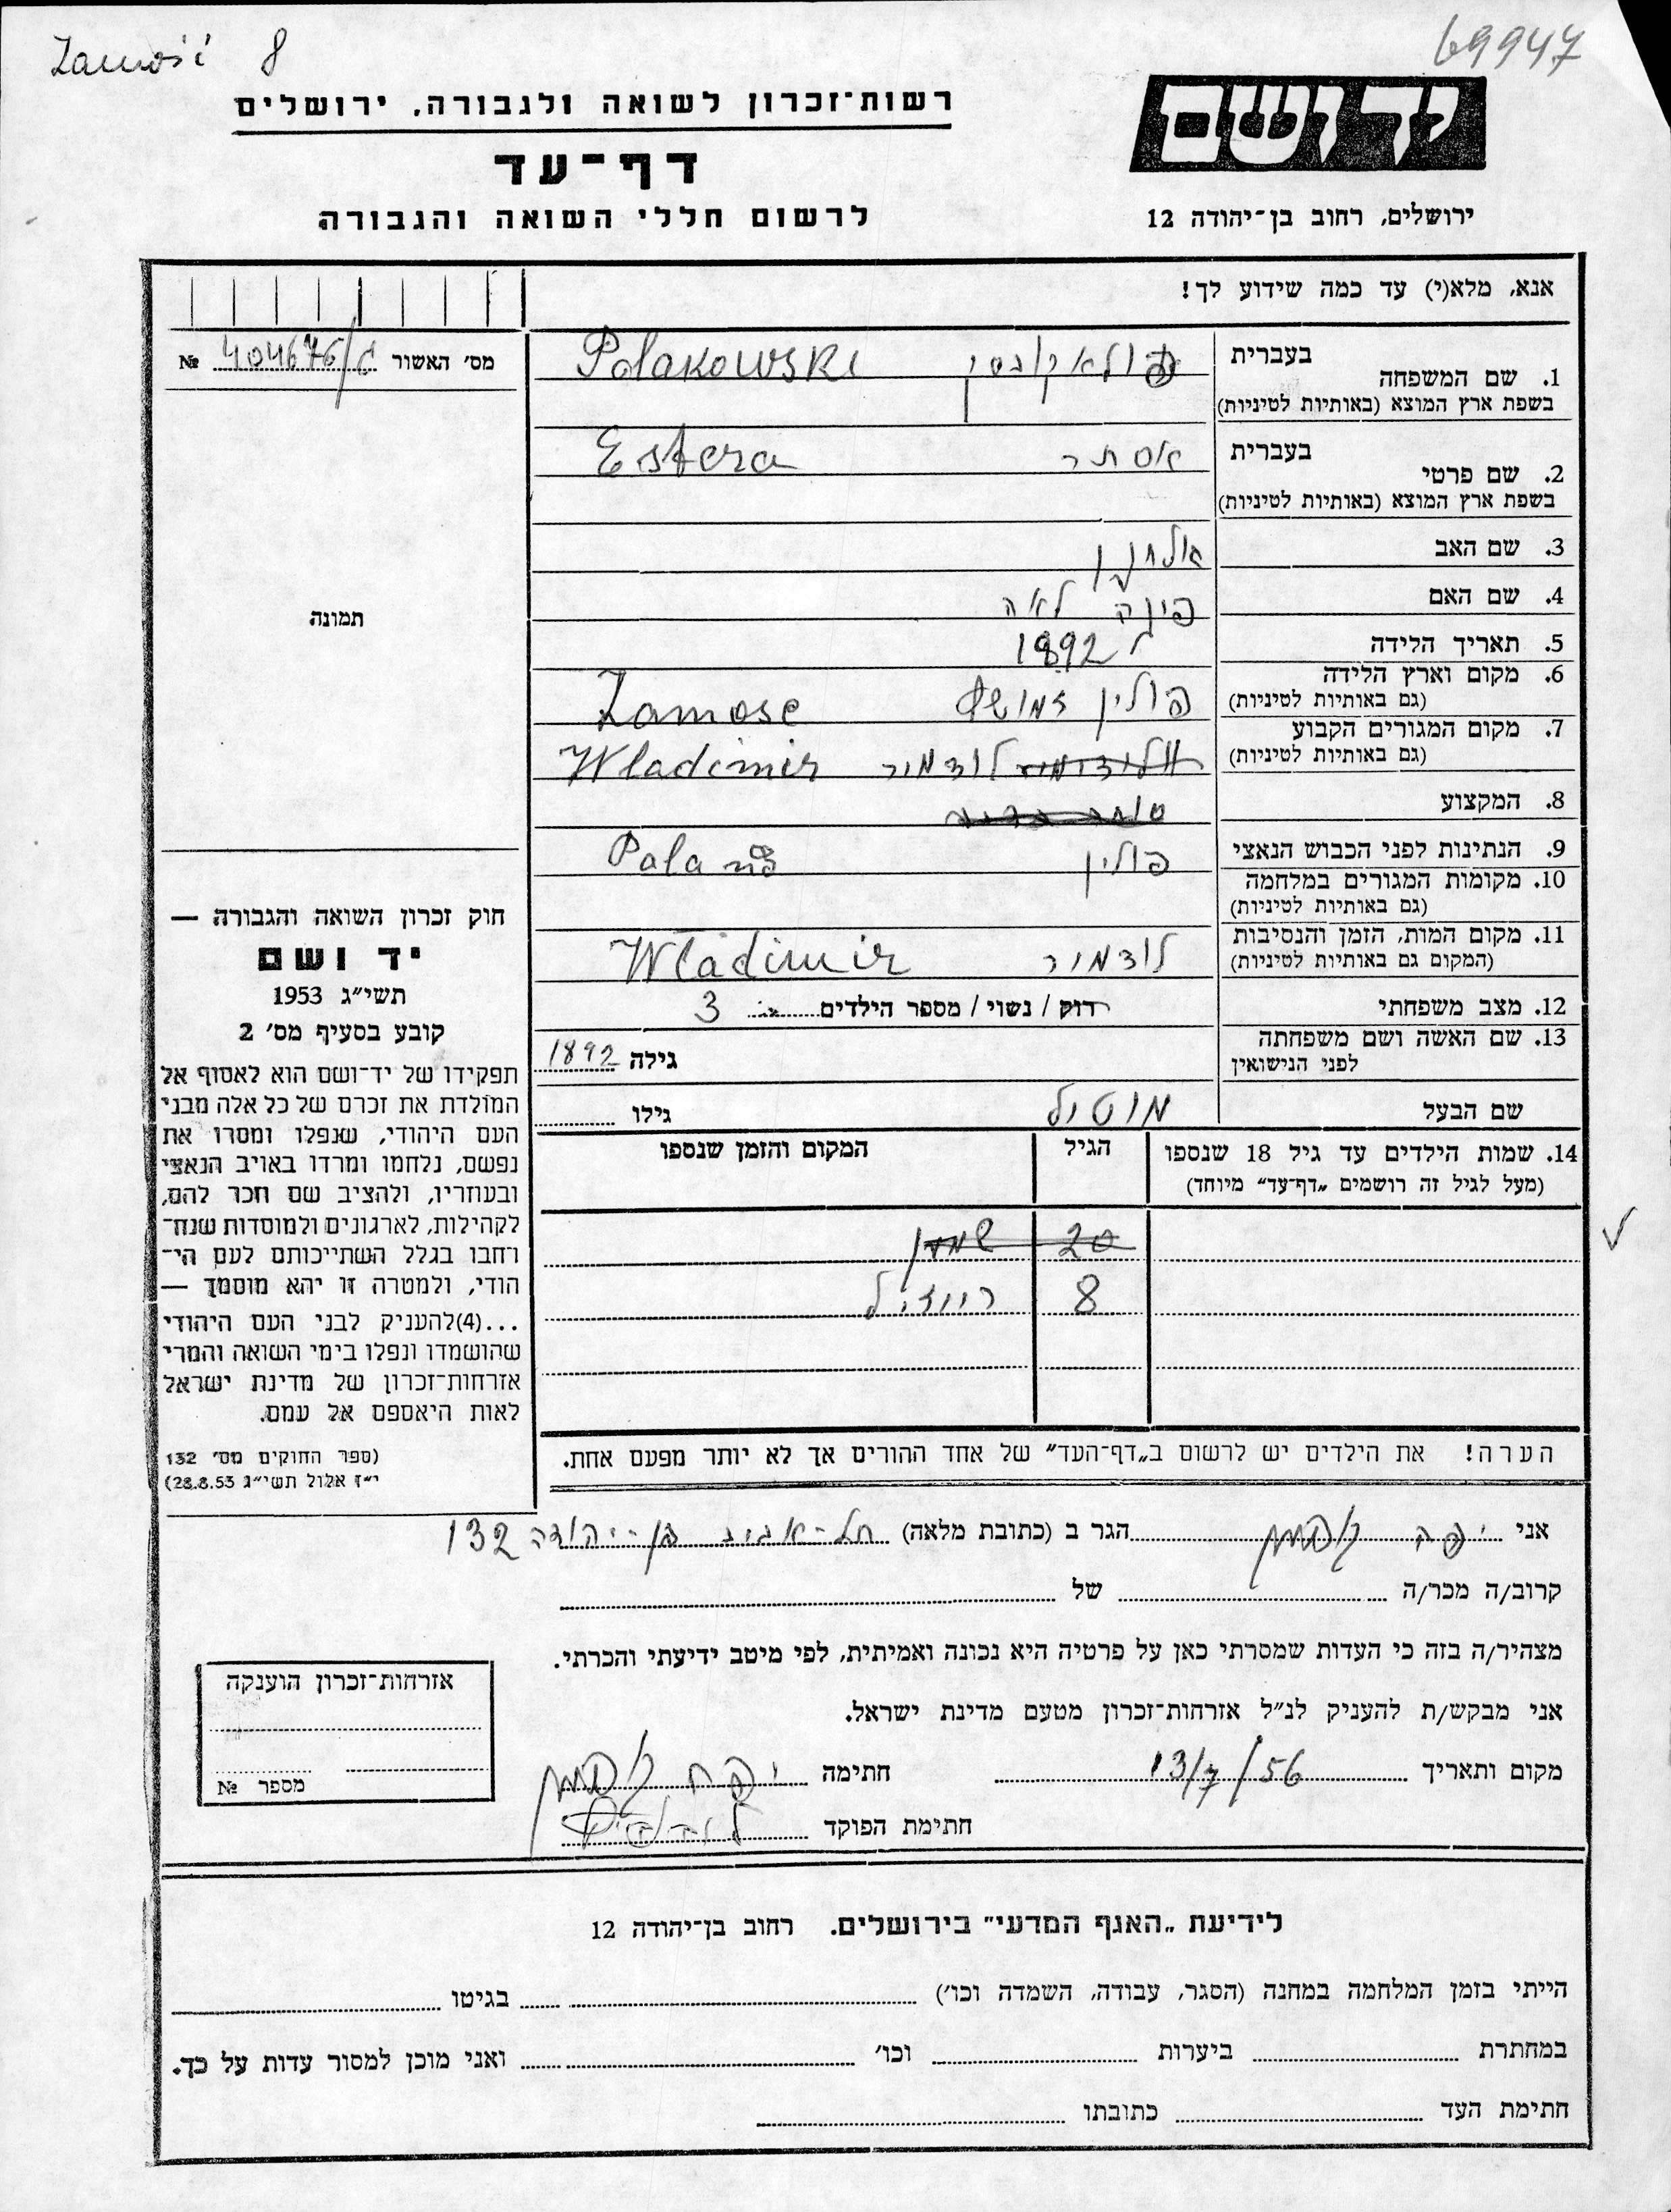 Zamość 8
69947
רשות־זכרון לשואה ולגבורה, ירושלים
יד ושם
דף־עד
לרשום חללי השואה והגבורה
ירושלים, רחוב בן־יהודה 12
אנא, מלא(י) עד כמה שידוע לך!
מס׳ האשור 404676/ג №
תמונה
1. שם המשפחה בעברית פולאקובסקי Polakowski
בשפת ארץ המוצא (באותיות לטיניות)
2. שם פרטי בעברית אסתר Estera
בשפת ארץ המוצא (באותיות לטיניות)
3. שם האב אלחנן
4. שם האם פיגה לאה
5. תאריך הלידה 1892
6. מקום וארץ הלידה פולין זמושץ Zamosc
(גם באותיות לטיניות)
7. מקום המגורים הקבוע לודמיר Wladimir
(גם באותיות לטיניות)
8. המקצוע
9. הנתינות לפני הכבוש הנאצי פולין
10. מקומות המגורים במלחמה
(גם באותיות לטיניות)
11. מקום המות, הזמן והנסיבות לודמיר Wladimir
(המקום גם באותיות לטיניות)
12. מצב משפחתי רווק / נשוי / מספר הילדים 3
13. שם האשה ושם משפחתה
לפני הנישואין גילה 1892
שם הבעל מוטיל גילו
14. שמות הילדים עד גיל 18 שנספו הגיל המקום והזמן שנספו
(מעל לגיל זה רושמים „דף־עד״ מיוחד)
20
8 רייזיל
הערה! את הילדים יש לרשום ב„דף־העד״ של אחד ההורים אך לא יותר מפעם אחת.
חוק זכרון השואה והגבורה —
יד ושם
תשי״ג 1953
קובע בסעיף מס׳ 2
תפקידו של יד־ושם הוא לאסוף אל
המולדת את זכרם של כל אלה מבני
העם היהודי, שנפלו ומסרו את
נפשם, נלחמו ומרדו באויב הנאצי
ובעוזריו, ולהציב שם וזכר להם,
לקהילות, לארגונים ולמוסדות שנח־
רחבו בגלל השתייכותם לעם הי־
הודי, ולמטרה זו יהא מוסמך —
...(4)להעניק לבני העם היהודי
שהושמדו ונפלו בימי השואה והמרי
אזרחות־זכרון של מדינת ישראל
לאות היאספם אל עמם.
(ספר החוקים מס׳ 132
י״ז אלול תשי״ג 28.8.53)
אני יפה הגר ב (כתובת מלאה) תל־אביב בן־יהודה 132
קרוב/ה מכר/ה של
מצהיר/ה בזה כי העדות שמסרתי כאן על פרטיה היא נכונה ואמיתית, לפי מיטב ידיעתי והכרתי.
אני מבקש/ת להעניק לנ״ל אזרחות־זכרון מטעם מדינת ישראל.
מקום ותאריך 13/7/56 חתימה יפה
חתימת הפוקד
אזרחות־זכרון הוענקה
מספר №
לידיעת „האגף המדעי״ בירושלים. רחוב בן־יהודה 12
הייתי בזמן המלחמה במחנה (הסגר, עבודה, השמדה וכו׳) בגיטו
במחתרת ביערות וכו׳ ואני מוכן למסור עדות על כך.
חתימת העד כתובתו